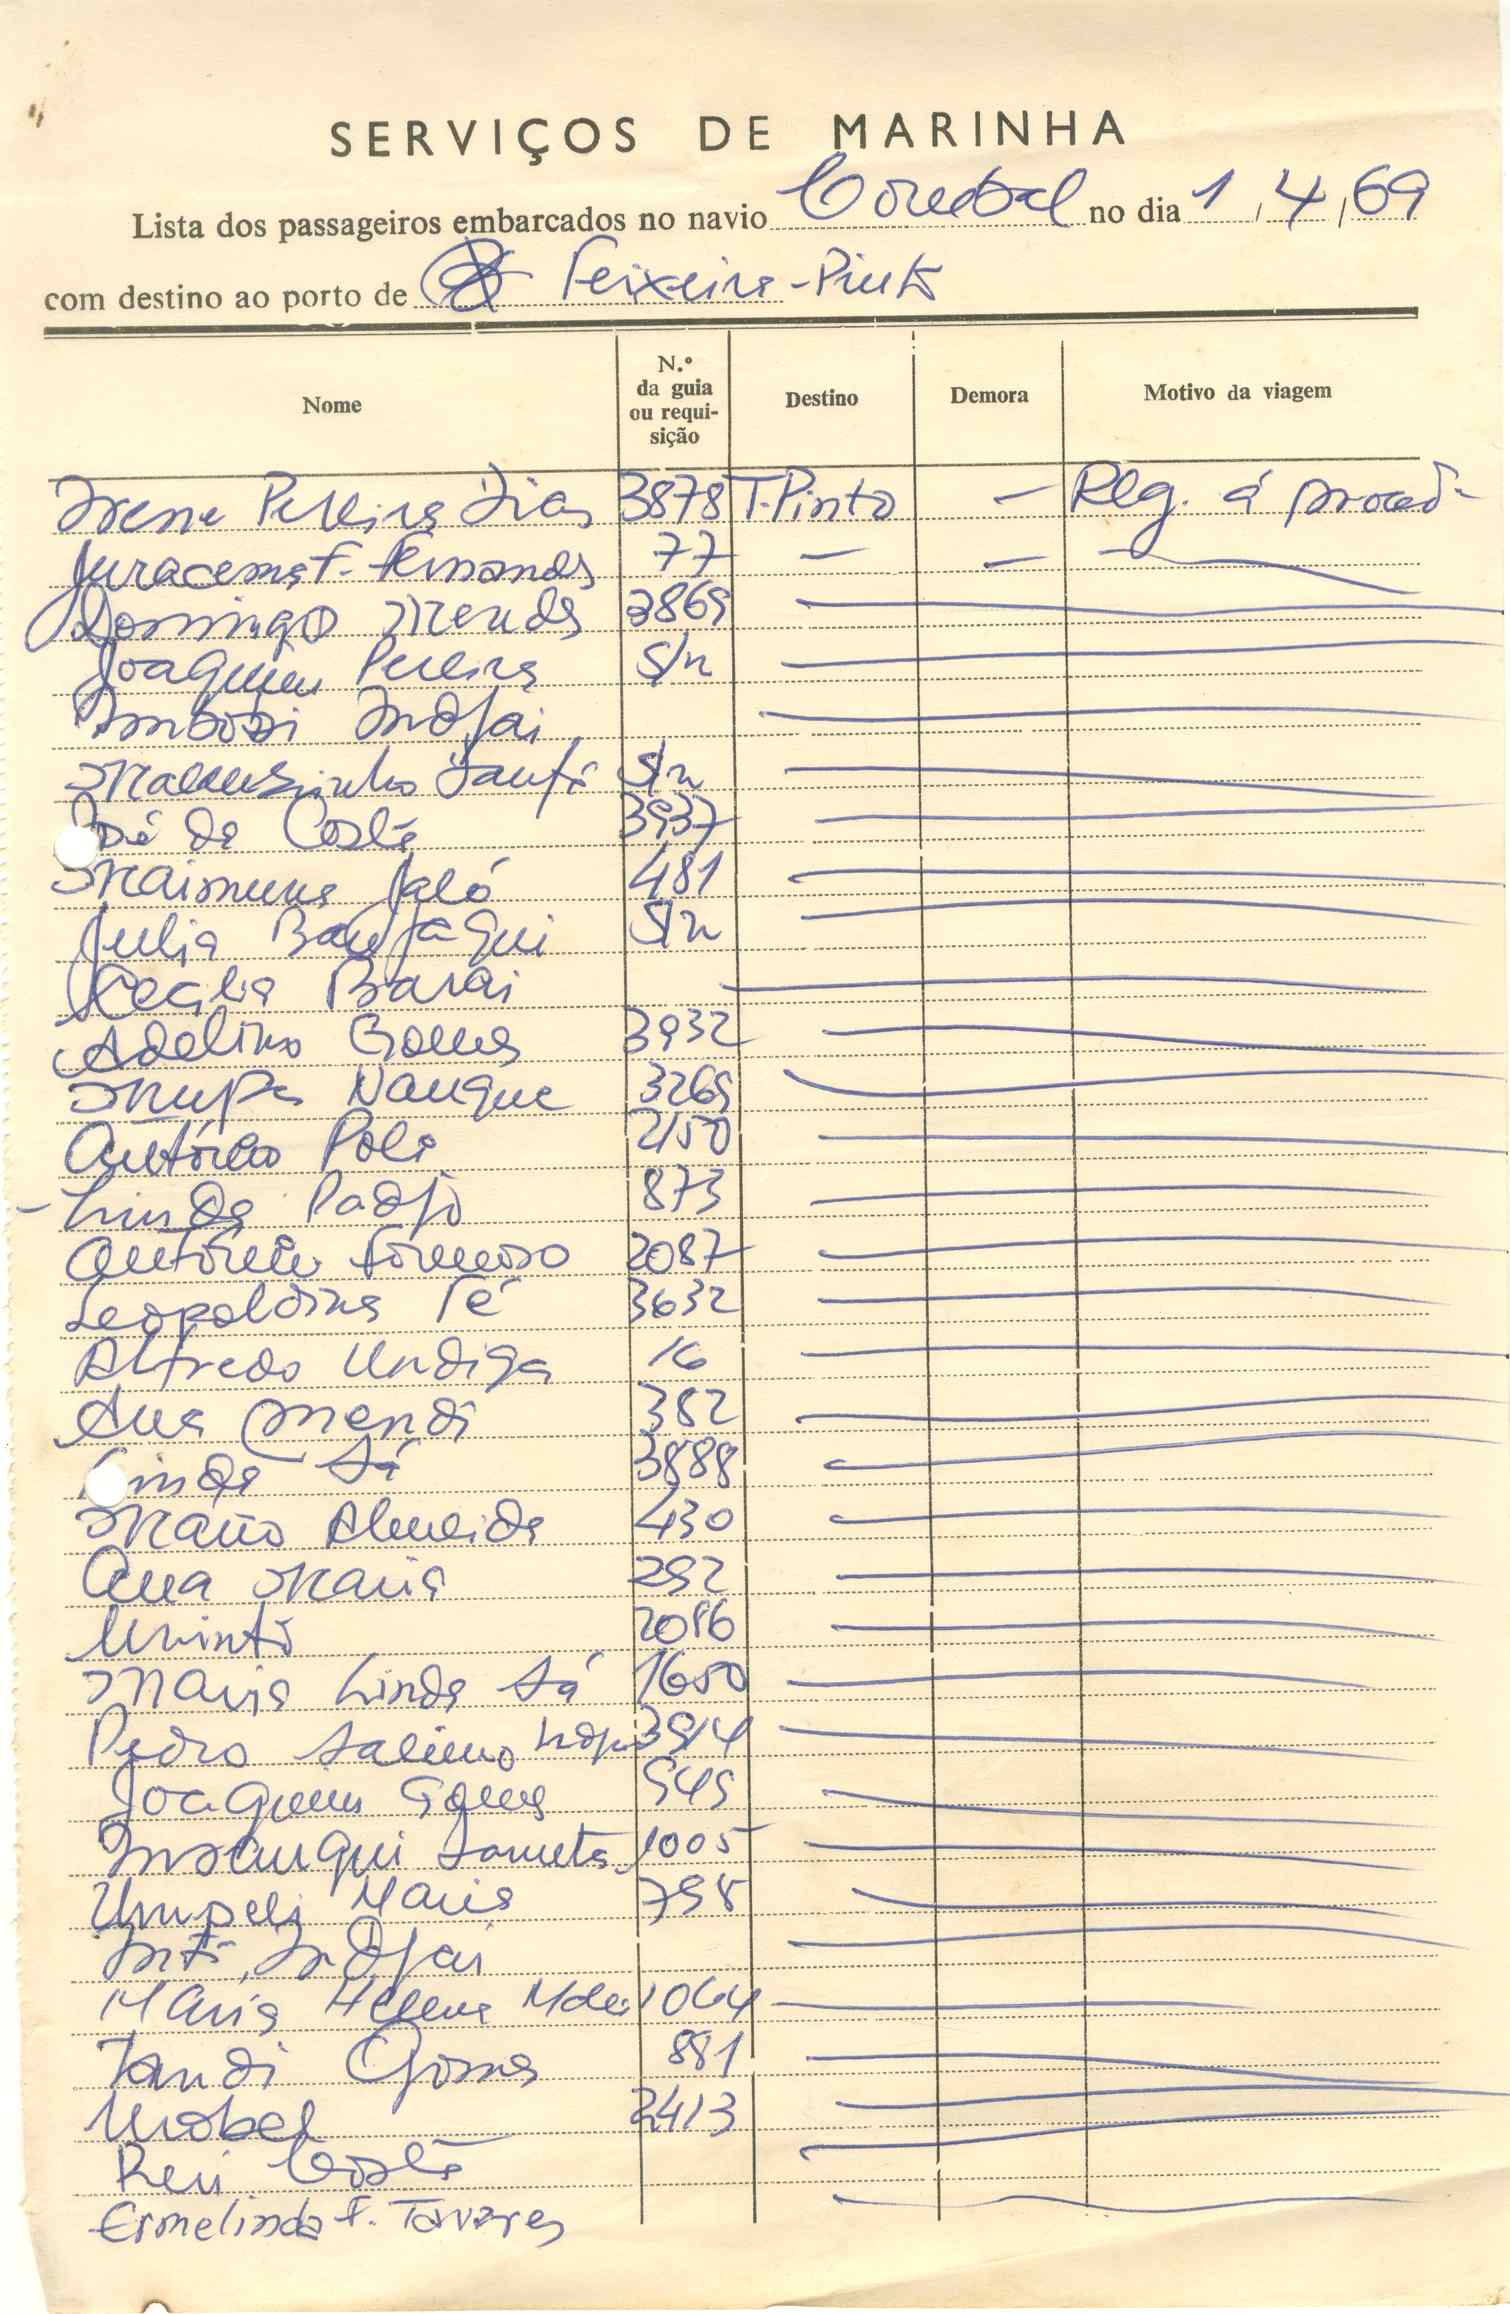 SERVIÇOS DE MARINHA
Lista dos passageiros embarcados no navio Corubal no dia 1, 4, 69
com destino ao porto de Teixeira-Pinto
Nome N.º da guia ou requisição Destino Demora Motivo da viagem
Irene Pereira Dias 3878 T.Pinto — Reg. á proced
Juracema F. Fernandes 77 — — —
Domingo Mendes 3869
Joaquim Pereira S/n
Indjai
S/n
José da Costa 3937
Maimuna Jaló 481
Julia S/n
Cecilia Barai
Adelino Gomes 3932
Nanque 3269
António Pole 2150
Linda Padjo 873
António Formoso 2087
Leopoldina Té 3632
Alfredo Undiga 16
Ana Mendi 382
Linda Sá 3888
Mário Almeida 430
Ana Maria 292
Uninto 2086
Maria Linda Sá 1650
Pedro 3914
Joaquim Gomes 949
1005
Umpeli Maria 798
Indjai
Maria Helena 1064
Tandi Gomes 881
2413
Costa
Ermelinda F. Tavares